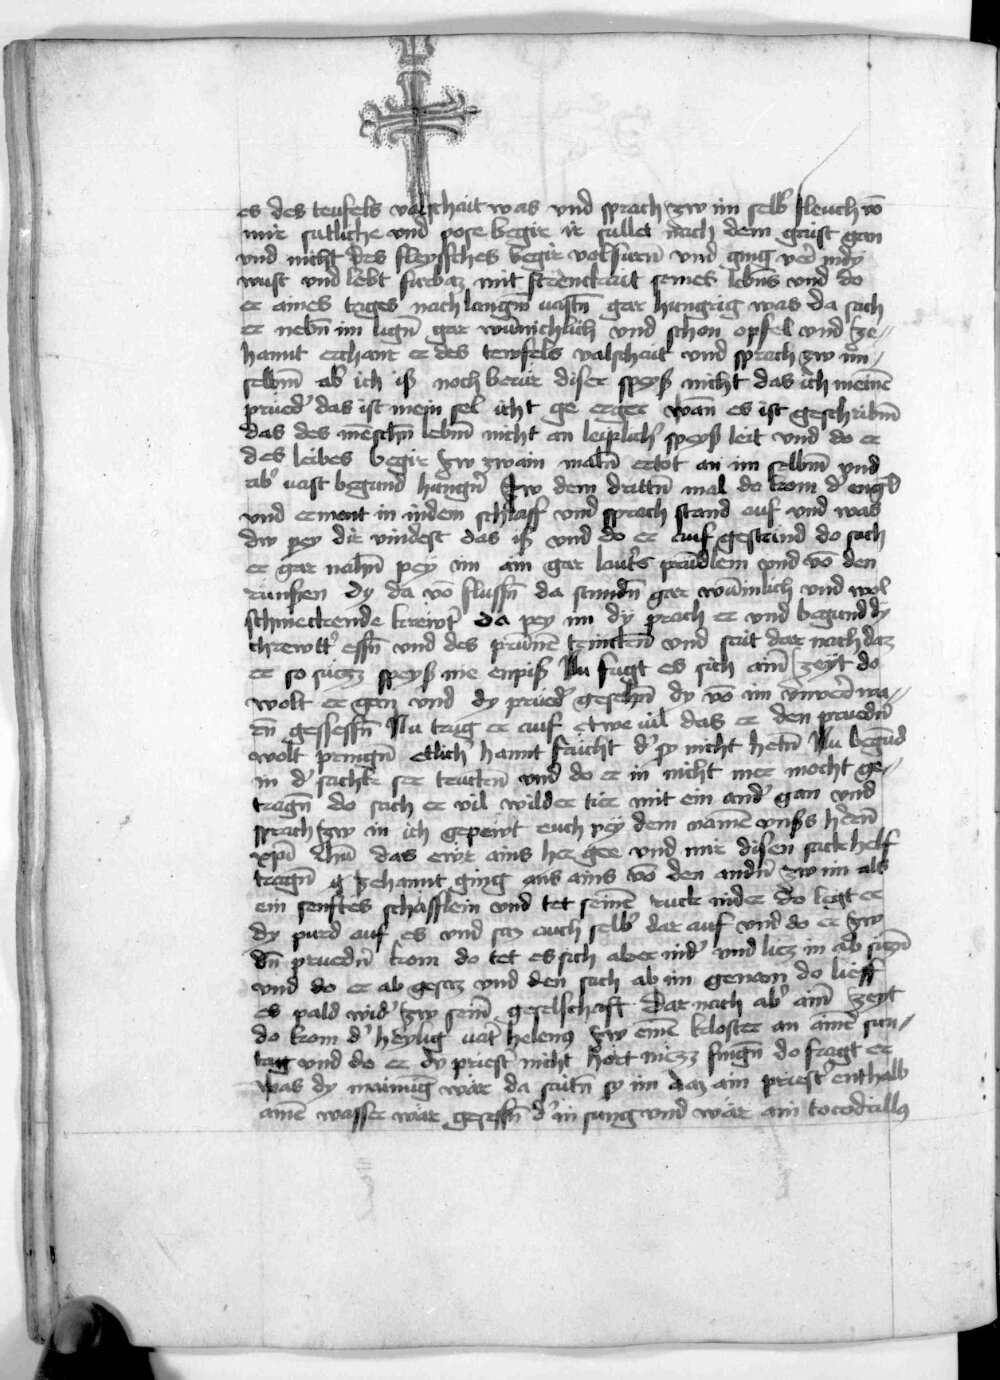 es des teufels valschait was vnd sprach zw im selb̕ fleuch vō
mir satliche vnd pose begir ir sullet nach dem gaist gan
vnd nicht des fleysches begir volfuren̄ vnd ging ver̄ in dy
wust vnd lebt furbaz mit strenckait seines lebn̄s vnd do
er aines tages nach langm̄ vastn̄ gar hungrig was da sach
er nebn̄ im lign̄ gar wunichlich vnd schon opfel vnd ze-
hannt erchant er des tewfels valschait vnd sprach zw im-
selbm̄ ab̕ ich iß noch berür diser speyß nicht das ich meinē
prüed̕ das ist mein sel icht ge erger wan̄ es ist geschribn̄
das des mēschn̄ lebm̄ nicht an leiplich̕ speyß leit vnd do er
des leibes begir zw zwain maln̄ ertot an im selbm̄ vnd
ab̕ vast begund hungn̄ Zw dem drittn̄ mal do kom d̕ engl̄
vnd ermont in in dem schlaff vnd sprach stand auf vnd was
dw pey dir vindest das iß vnd do er auf gestund do sach
er gar nahn̄ pey im ain gar laut̕s prüdlein vnd vō den
runsen dy da vō flussn̄ da stundn̄ gar wūnichlich vnd wol
schmeckende krewt̕ da pey im dy prach er vnd begund dy
chrewtt̕ essn̄ vnd des prūnē trinckn̄ vnd sait dar nach daz
er so süezz speyß nie enpiß Nu fugt es sich ainē zeyt do
wolt er gan vnd dy prüed̕ gesehn̄ dy vō im v̄nverr̄ wa-
rn̄ gessessn̄ Nu trug er auf etwe vil das er den pruedn̄
wolt pringn̄ etlich̕ hannt frücht d̕ sy nicht hetn̄ Nu begūd
in d̕ sackh ser truckn̄ vnd do er in nicht mer mocht ge-
tragn̄ do sach er vil wilder tier mit ein and̕ gan vnd
sprach zw in ich gepewt euch pey dem namē vnsers h̕rn̄
xp̄i ih̄u das ewr ains her gee vnd mir disen sackh helf
tragn̄ zehannt ging ains vō den andn̄ zw im als
ein senftes schäfflein vnd tet seinē ruck nider do legt er
dy purd auf es vnd saz auch selb̕ dar auf vnd do er zw
dn̄ pruedn̄ kom do tet es sich aber nid̕ vnd liez in ab siczn̄
vnd do er ab gesaz vnd den sach ab im genom do lieff
es pald wid̕ zw seinē geselschaft Dar nach ab̕ ainē zeyt
do kom d̕ heylig vat̕ helenus zw einē kloster an ainē sun-
tag vnd do er dy priest̕ nicht hort niezz singn̄ do fragt er
was dy mainūg wär da saitn̄ sy im daz ain priest̕ enthalb
ainē wasser wär gesessn̄ d̕ in sung vnd wär ain cocodrillus